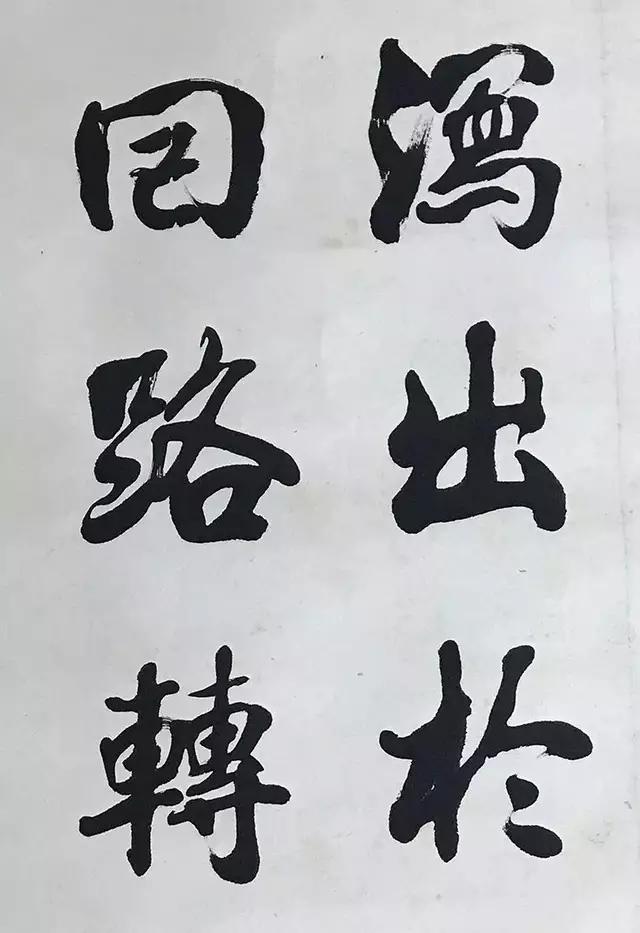 瀉出於
回路轉